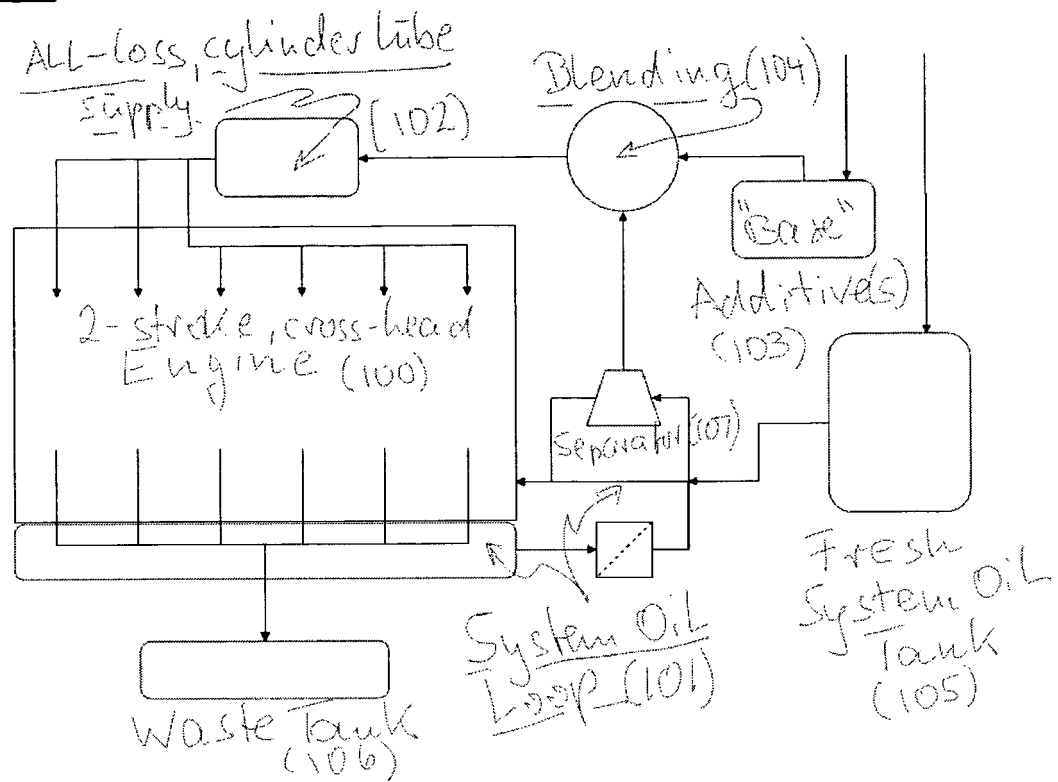 ALL-loss, cylinder lube
supply.
(102)
Blending (104)
"Base"
Additive(s)
(103)
2-stroke, cross-head
Engine (100)
Separator (107)
Fresh
System Oil
Tank
(105)
System Oil
Loop (101)
Waste Tank
(106)